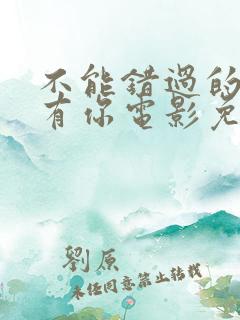 不能錯過的
有你電影免
劉原
未经同意禁止转载